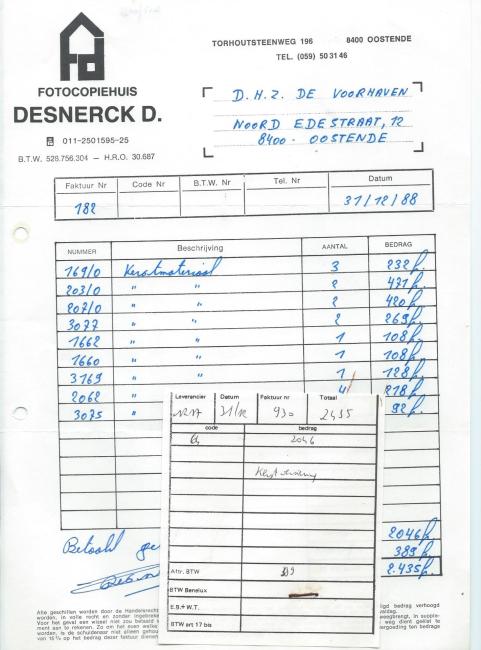 FOTOCOPIEHUIS
DESNERCK D.
011-2501595-25
B.T.W. 528.756.304 — H.R.O. 30.687
TORHOUTSTEENWEG 196 8400 OOSTENDE
TEL. (059) 50 31 46
D.H.Z. DE VOORHAVEN
NOORD EDESTRAAT, 12
8400 - OOSTENDE
Faktuur Nr Code Nr B.T.W. Nr Tel. Nr Datum
182 31/12/88
NUMMER Beschrijving AANTAL BEDRAG
169/0 Kerstmateriaal 3 232 f.
203/0 " " 2 471 f.
207/0 " " 2 420 f.
3077 " " 2 269 f.
1662 " " 1 108 f.
1660 " " 1 108 f.
3169 " " 1 128 f.
2062 " 4 218 f.
3075 " 92 f.
Leverancier Datum Faktuur nr Totaal
31/12 930 2435
code bedrag
64 2046
Attr. BTW 389
BTW Benelux
E.B.+ W.T.
BTW art 17 bis
2046 f.
389 f.
2.435 f.
Betaald
Alle geschillen worden door de Handelsrecht
worden, in volle recht en zonder ingebreke
Voor het geval een wissel niet zou betaald
ment aan te rekenen. Zo om het even welke
worden, is de schuldenaar niet alleen gehou
van 15% op het bedrag dezer faktuur dienen